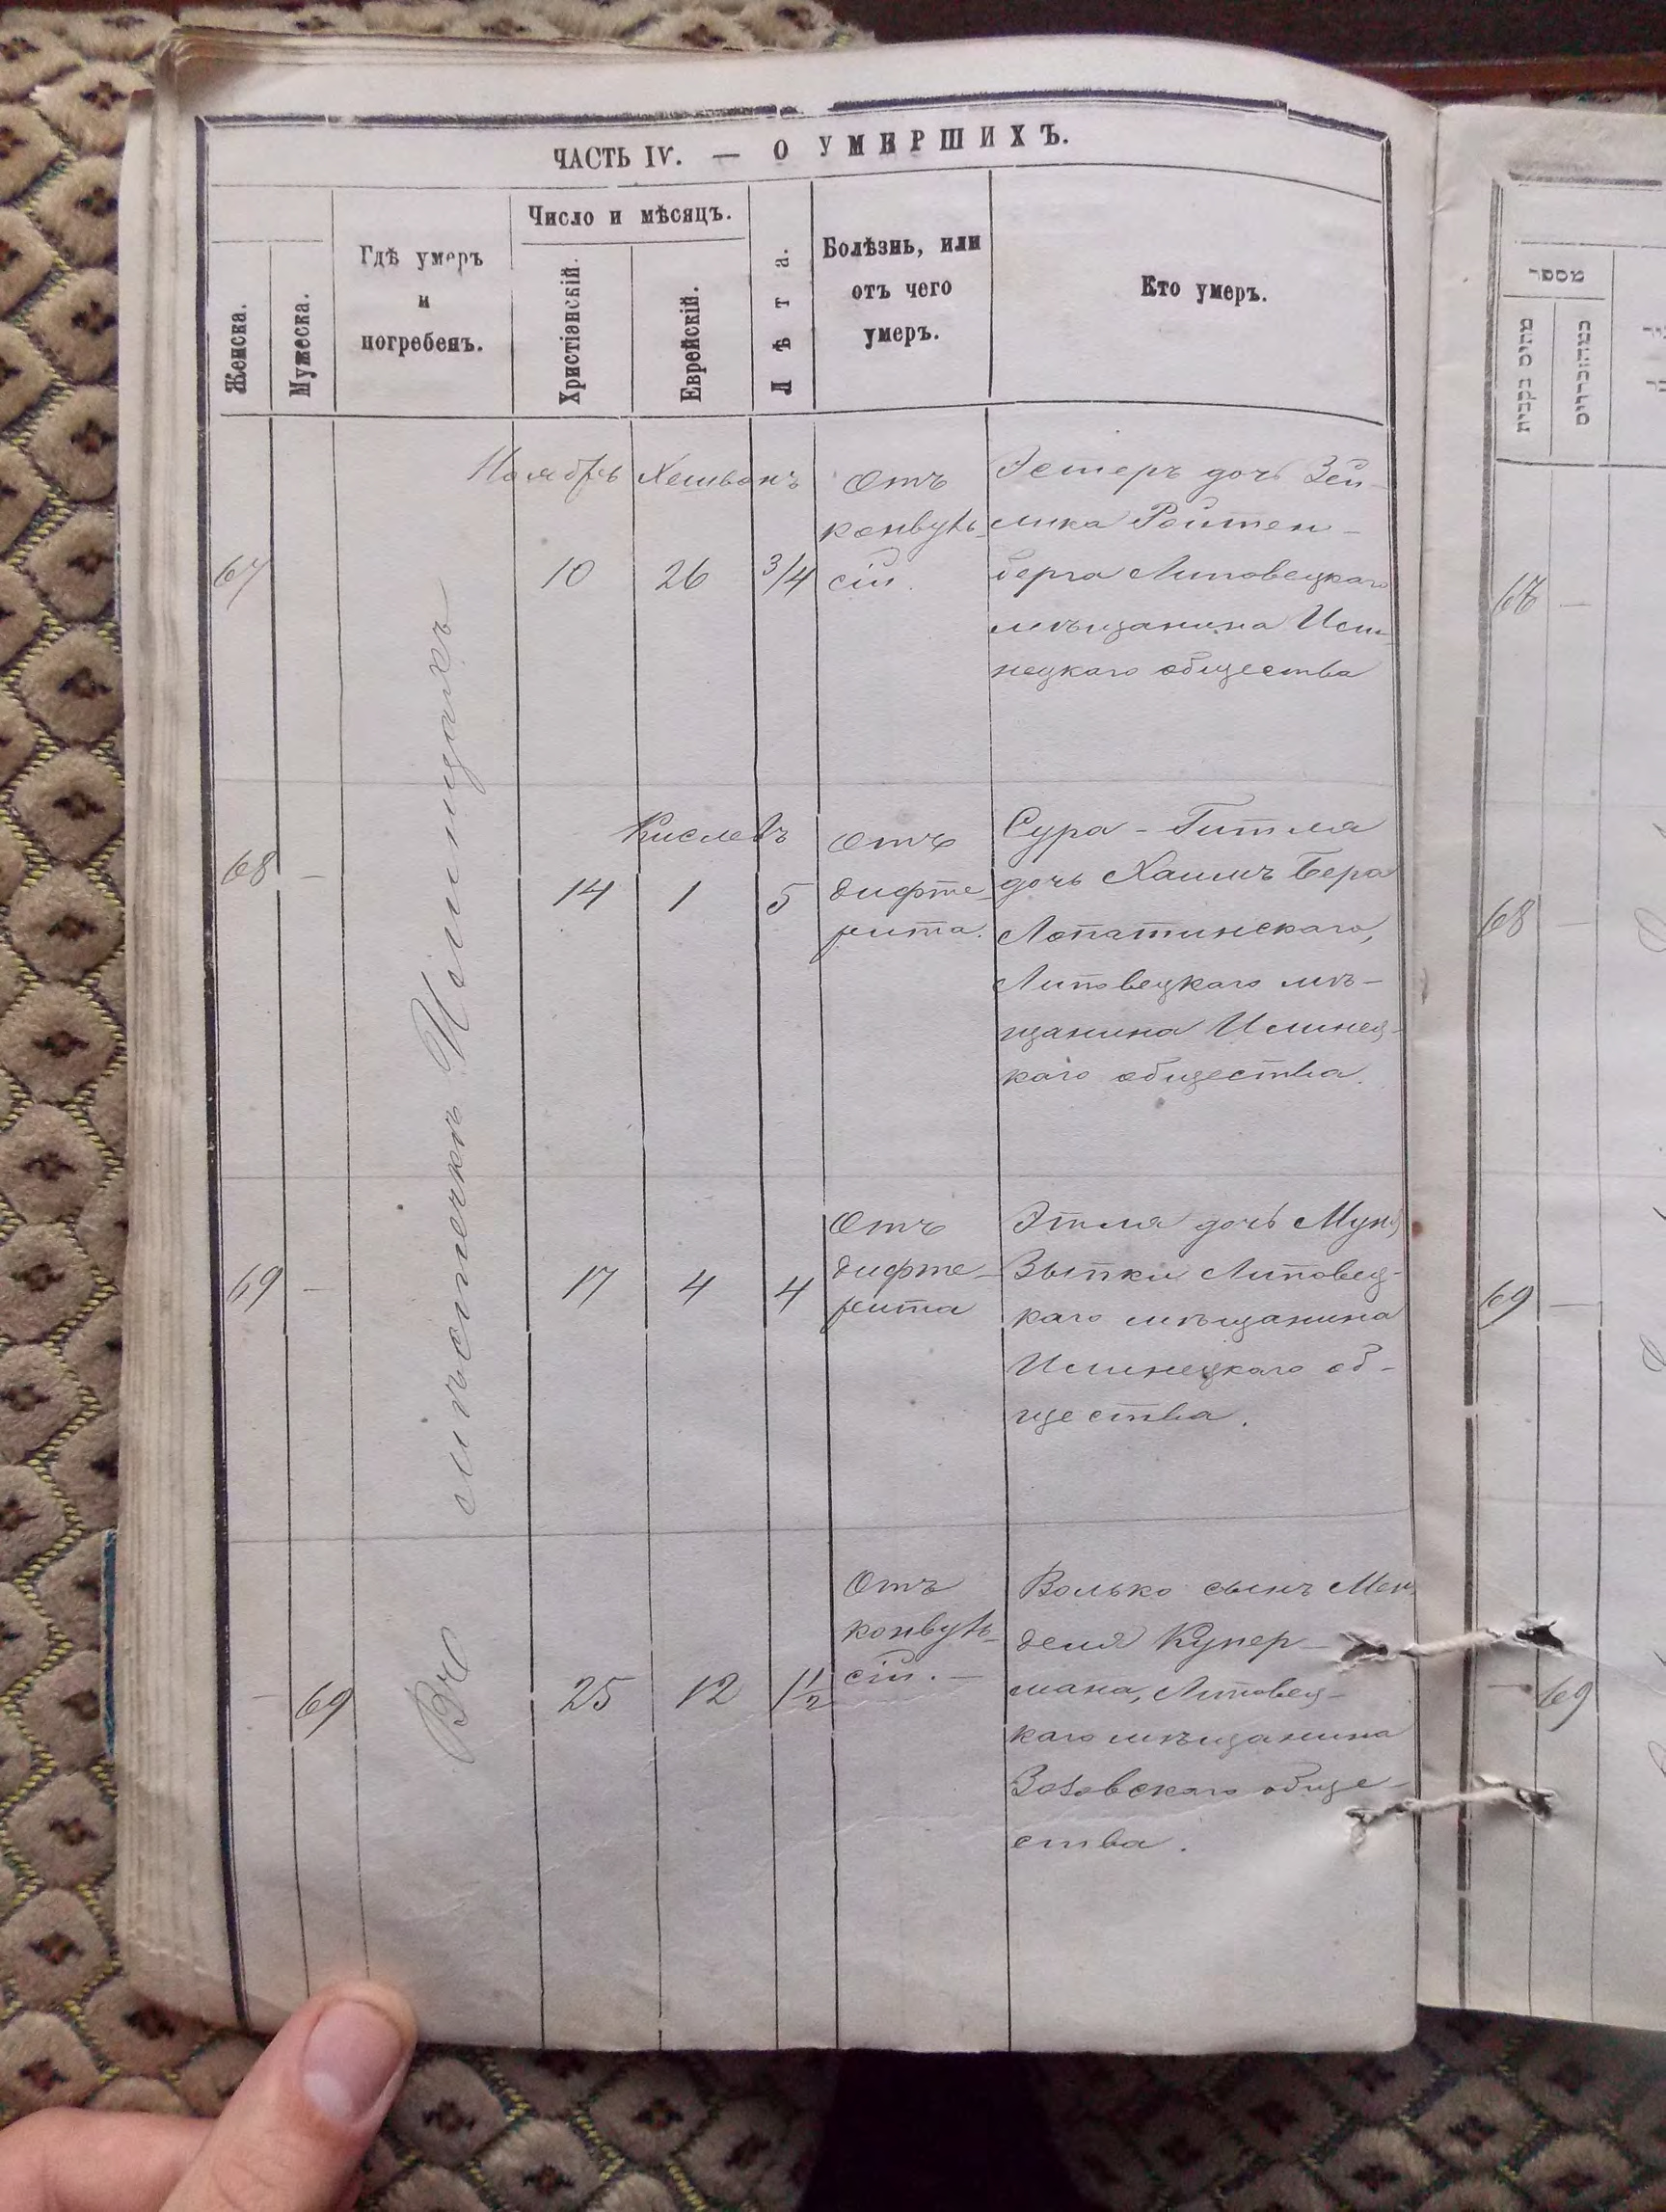 ЧАСТЬ IV. — О УМЕРШИХЪ.
Женска.
Мужеска.
Гдѣ умеръ
и
погребенъ.
Число и мѣсяцъ.
Христіанскій.
Еврейскій.
Лѣта.
Болѣзнь, или
отъ чего
умеръ.
Кто умеръ.
Въ мѣстечкѣ Илинцахъ
67
Ноябрь
10
Хешванъ
26
3/4
Отъ
конвуль-
сіи.
Эстеръ дочь Зей-
лика Ройтен-
берга Липовецкаго
мѣщанина Или-
нецкаго общества
68 —
14
Кислевъ
1
5
Отъ
дифте-
рита.
Сура-Гитля
дочь Хаимъ Бера
Лопатинскаго,
Липовецкаго мѣ-
щанина Илинец-
каго общества.
69 —
17
4
4
Отъ
дифте-
рита
Этля дочь
Зыпки Липовец-
каго мѣщанина
Илинецкаго об-
щества.
— 69
25
12
1 1/2
Отъ
конвуль-
сіи. —
Волько сынъ Мен-
деля Купер-
мана, Липовец-
каго мѣщанина
обще-
ства.
מספר
מתים נקבות
מהזכרים
67 —
68 —
69 —
— 69